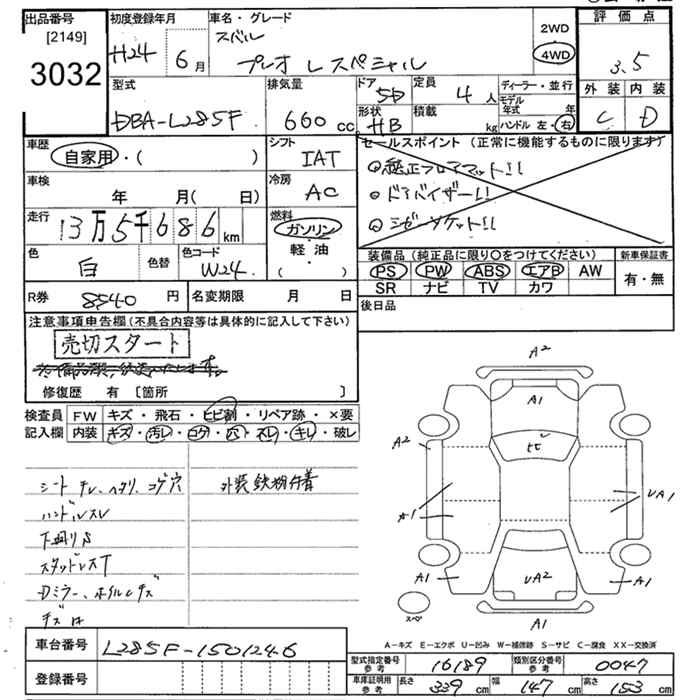 出品番号 初度登録年月 車名・グレード 評価点
[2149] スバル 2WD
3032 H24 6月 プレオ L スペシャル 4WD 3.5
型式 排気量 ドア 定員 ディーラー・並行 外装 内装
DBA-L285F 660cc 5D 4人 モデル年式 年 C D
形状 積載 HB kg ハンドル 左・右
車歴 シフト セールスポイント (正常に機能するものに限ります)
自家用・( ) IAT 純正フロアマット!!
車検 冷房 ドアバイザー!!
年 月( 日) AC シガーソケット!!
走行 燃料
13万5千686km ガソリン 装備品 (純正品に限り○をつけてください) 新車保証書
色 色替 色コード 軽油 PS PW ABS エアB AW 有・無
白 W24 ( ) SR ナビ TV カワ
R券 8540円 名変期限 月 日 後日品
注意事項申告欄 (不具合内容等は具体的に記入して下さい)
売切スタート
修復歴 有 [箇所 ]
検査員 FW キズ・飛石・ヒビ割・リペア跡・×要
記入欄 内装 キズ・汚レ・コゲ・穴・スレ・キレ・破レ
シート チレ、ヘタリ、コゲ穴 外装鉄粉付着
ハンドルスレ
下廻りS
スタッドレスT
Dミラー、ホイルキズ
A2
A1
A2 ヒビ
A1 UA1
A1 UA2 A1
スペ A1
A-キズ E-エクボ U-凹み W-補修跡 S-サビ C-腐食 XX-交換済
車台番号 L285F-1501246 型式指定番号 参考 16189 類別区分番号 参考 0047
登録番号 車庫証明用 参考 長さ 339cm 幅 147cm 高さ 153cm